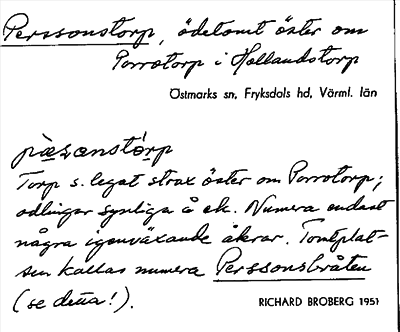 Perssonstorp, ödetomt öster om
Porrotorp i Hollandstorp
Östmarks sn, Fryksdals hd, Värml. län
pæ̀ʂonstórp
Torp s. legat strax öster om Porrotorp;
odlingar synliga å ek. Numera endast
några igenväxande åkrar. Tomtplat-
sen kallas numera Perssonsbråten
(se detta!).
RICHARD BROBERG 1951